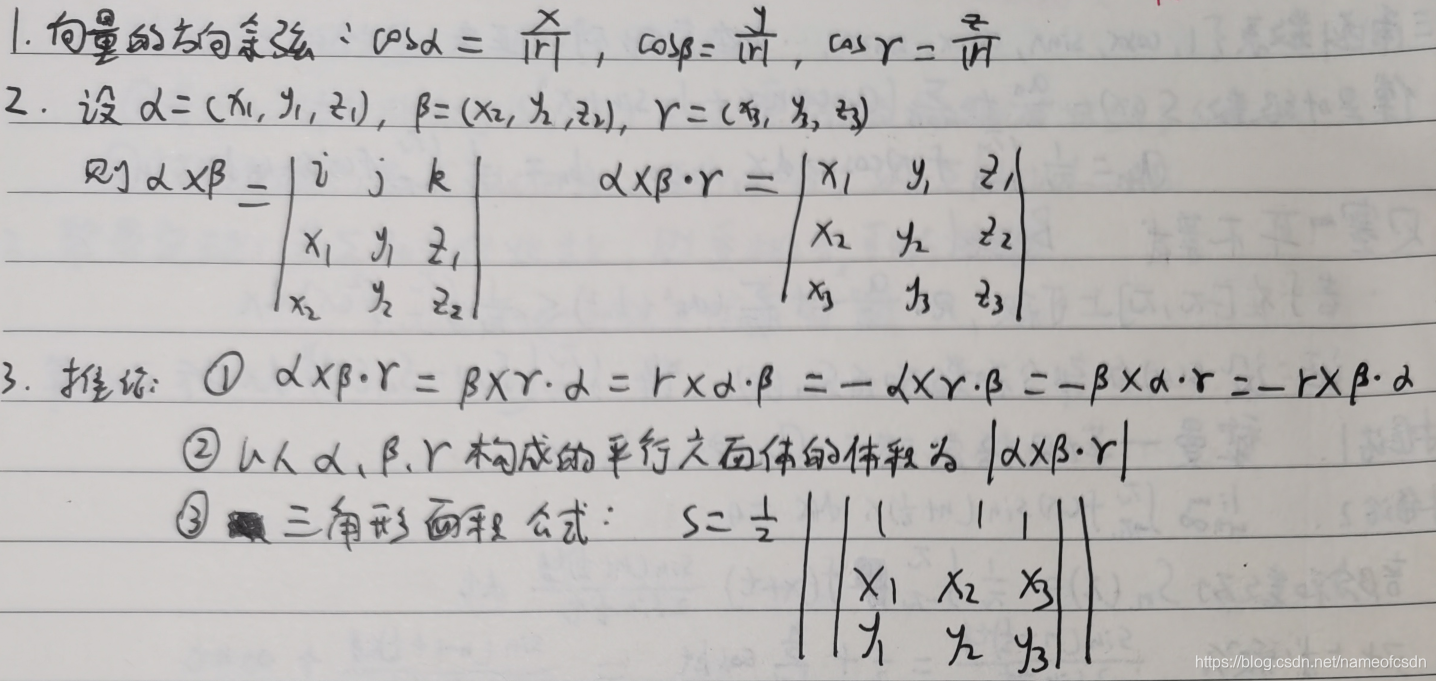 1. 向量的方向余弦：cosα = x/|r|, cosβ = y/|r|, cosγ = z/|r|
2. 设 α=(x₁, y₁, z₁), β=(x₂, y₂, z₂), γ=(x₃, y₃, z₃)
则 α×β = | i j k | α×β·γ = | x₁ y₁ z₁ |
| x₁ y₁ z₁ | | x₂ y₂ z₂ |
| x₂ y₂ z₂ | | x₃ y₃ z₃ |
3. 推论: ① α×β·γ = β×γ·α = γ×α·β = -α×γ·β = -β×α·γ = -γ×β·α
② 以 α、β、γ 构成的平行六面体的体积为 |α×β·γ|
③ 三角形面积公式: S = 1/2 || 1 1 1 ||
|| x₁ x₂ x₃ ||
|| y₁ y₂ y₃ ||
https://blog.csdn.net/nameofcsdn